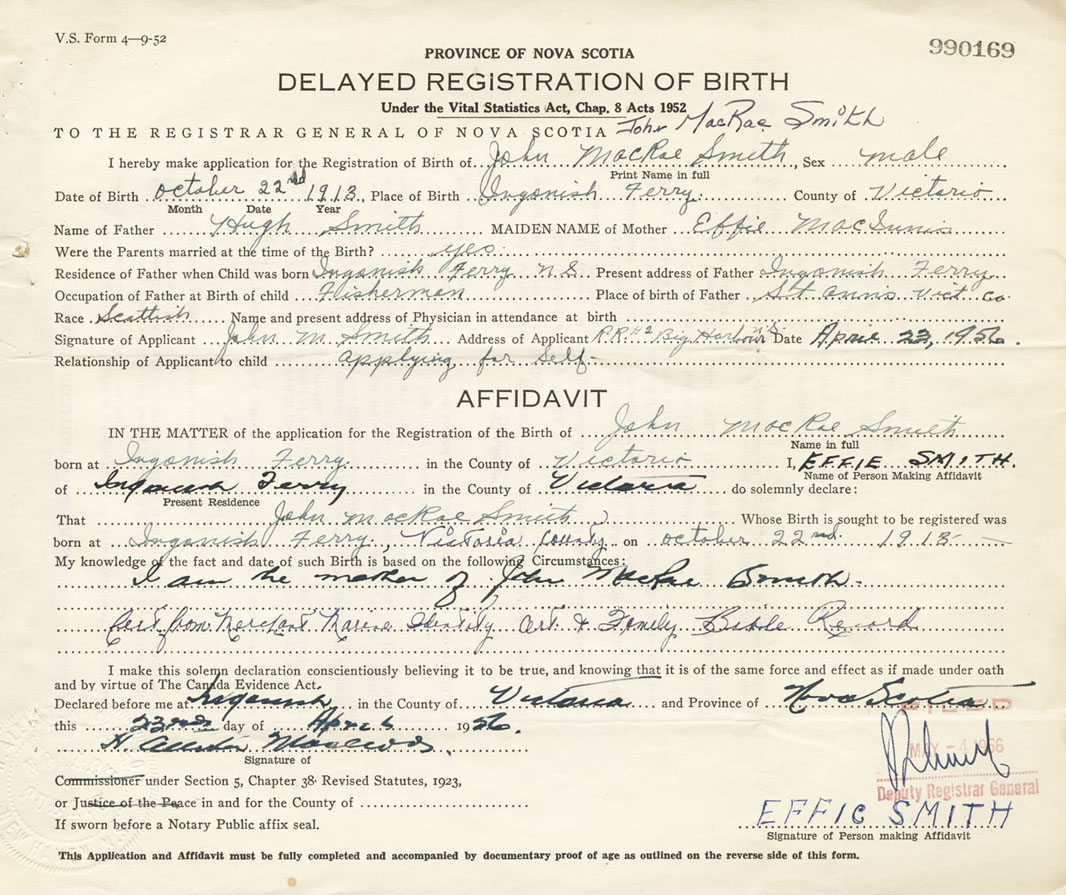 V.S. Form 4—9-52
990169
PROVINCE OF NOVA SCOTIA
DELAYED REGISTRATION OF BIRTH
Under the Vital Statistics Act, Chap. 8 Acts 1952
TO THE REGISTRAR GENERAL OF NOVA SCOTIA John MacRae Smith
I hereby make application for the Registration of Birth of John MacRae Smith, Sex male
Print Name in full
Date of Birth October 22nd 1913, Place of Birth Ingonish Ferry County of Victoria
Month Date Year
Name of Father Hugh Smith MAIDEN NAME of Mother Effie MacInnis
Were the Parents married at the time of the Birth? yes
Residence of Father when Child was born Ingonish Ferry N.S. Present address of Father Ingonish Ferry
Occupation of Father at Birth of child Fisherman Place of birth of Father St. Anns Vict Co.
Race Scottish Name and present address of Physician in attendance at birth
Signature of Applicant John M Smith Address of Applicant R.R.#2 Big Harbour N.S. Date April 23, 1956.
Relationship of Applicant to child applying for Self-
AFFIDAVIT
IN THE MATTER of the application for the Registration of the Birth of John MacRae Smith
Name in full
born at Ingonish Ferry in the County of Victoria I, EFFIE SMITH.
Name of Person Making Affidavit
of Ingonish Ferry in the County of Victoria do solemnly declare:
Present Residence
That John MacRae Smith Whose Birth is sought to be registered was
born at Ingonish Ferry, Victoria County on october 22nd 1913
My knowledge of the fact and date of such Birth is based on the following Circumstances:
I am the mother of John MacRae Smith.
Cert from Merchant Marine Identity Cert & Family Bible Record
I make this solemn declaration conscientiously believing it to be true, and knowing that it is of the same force and effect as if made under oath
and by virtue of The Canada Evidence Act.
Declared before me at Ingonish, in the County of Victoria and Province of Nova Scotia
this 23rd day of April 1956.
Signature of
FILED
MAY -4 1956
Deputy Registrar General
Commissioner under Section 5, Chapter 38 Revised Statutes, 1923,
or Justice of the Peace in and for the County of
EFFIE SMITH
If sworn before a Notary Public affix seal.
Signature of Person making Affidavit
This Application and Affidavit must be fully completed and accompanied by documentary proof of age as outlined on the reverse side of this form.